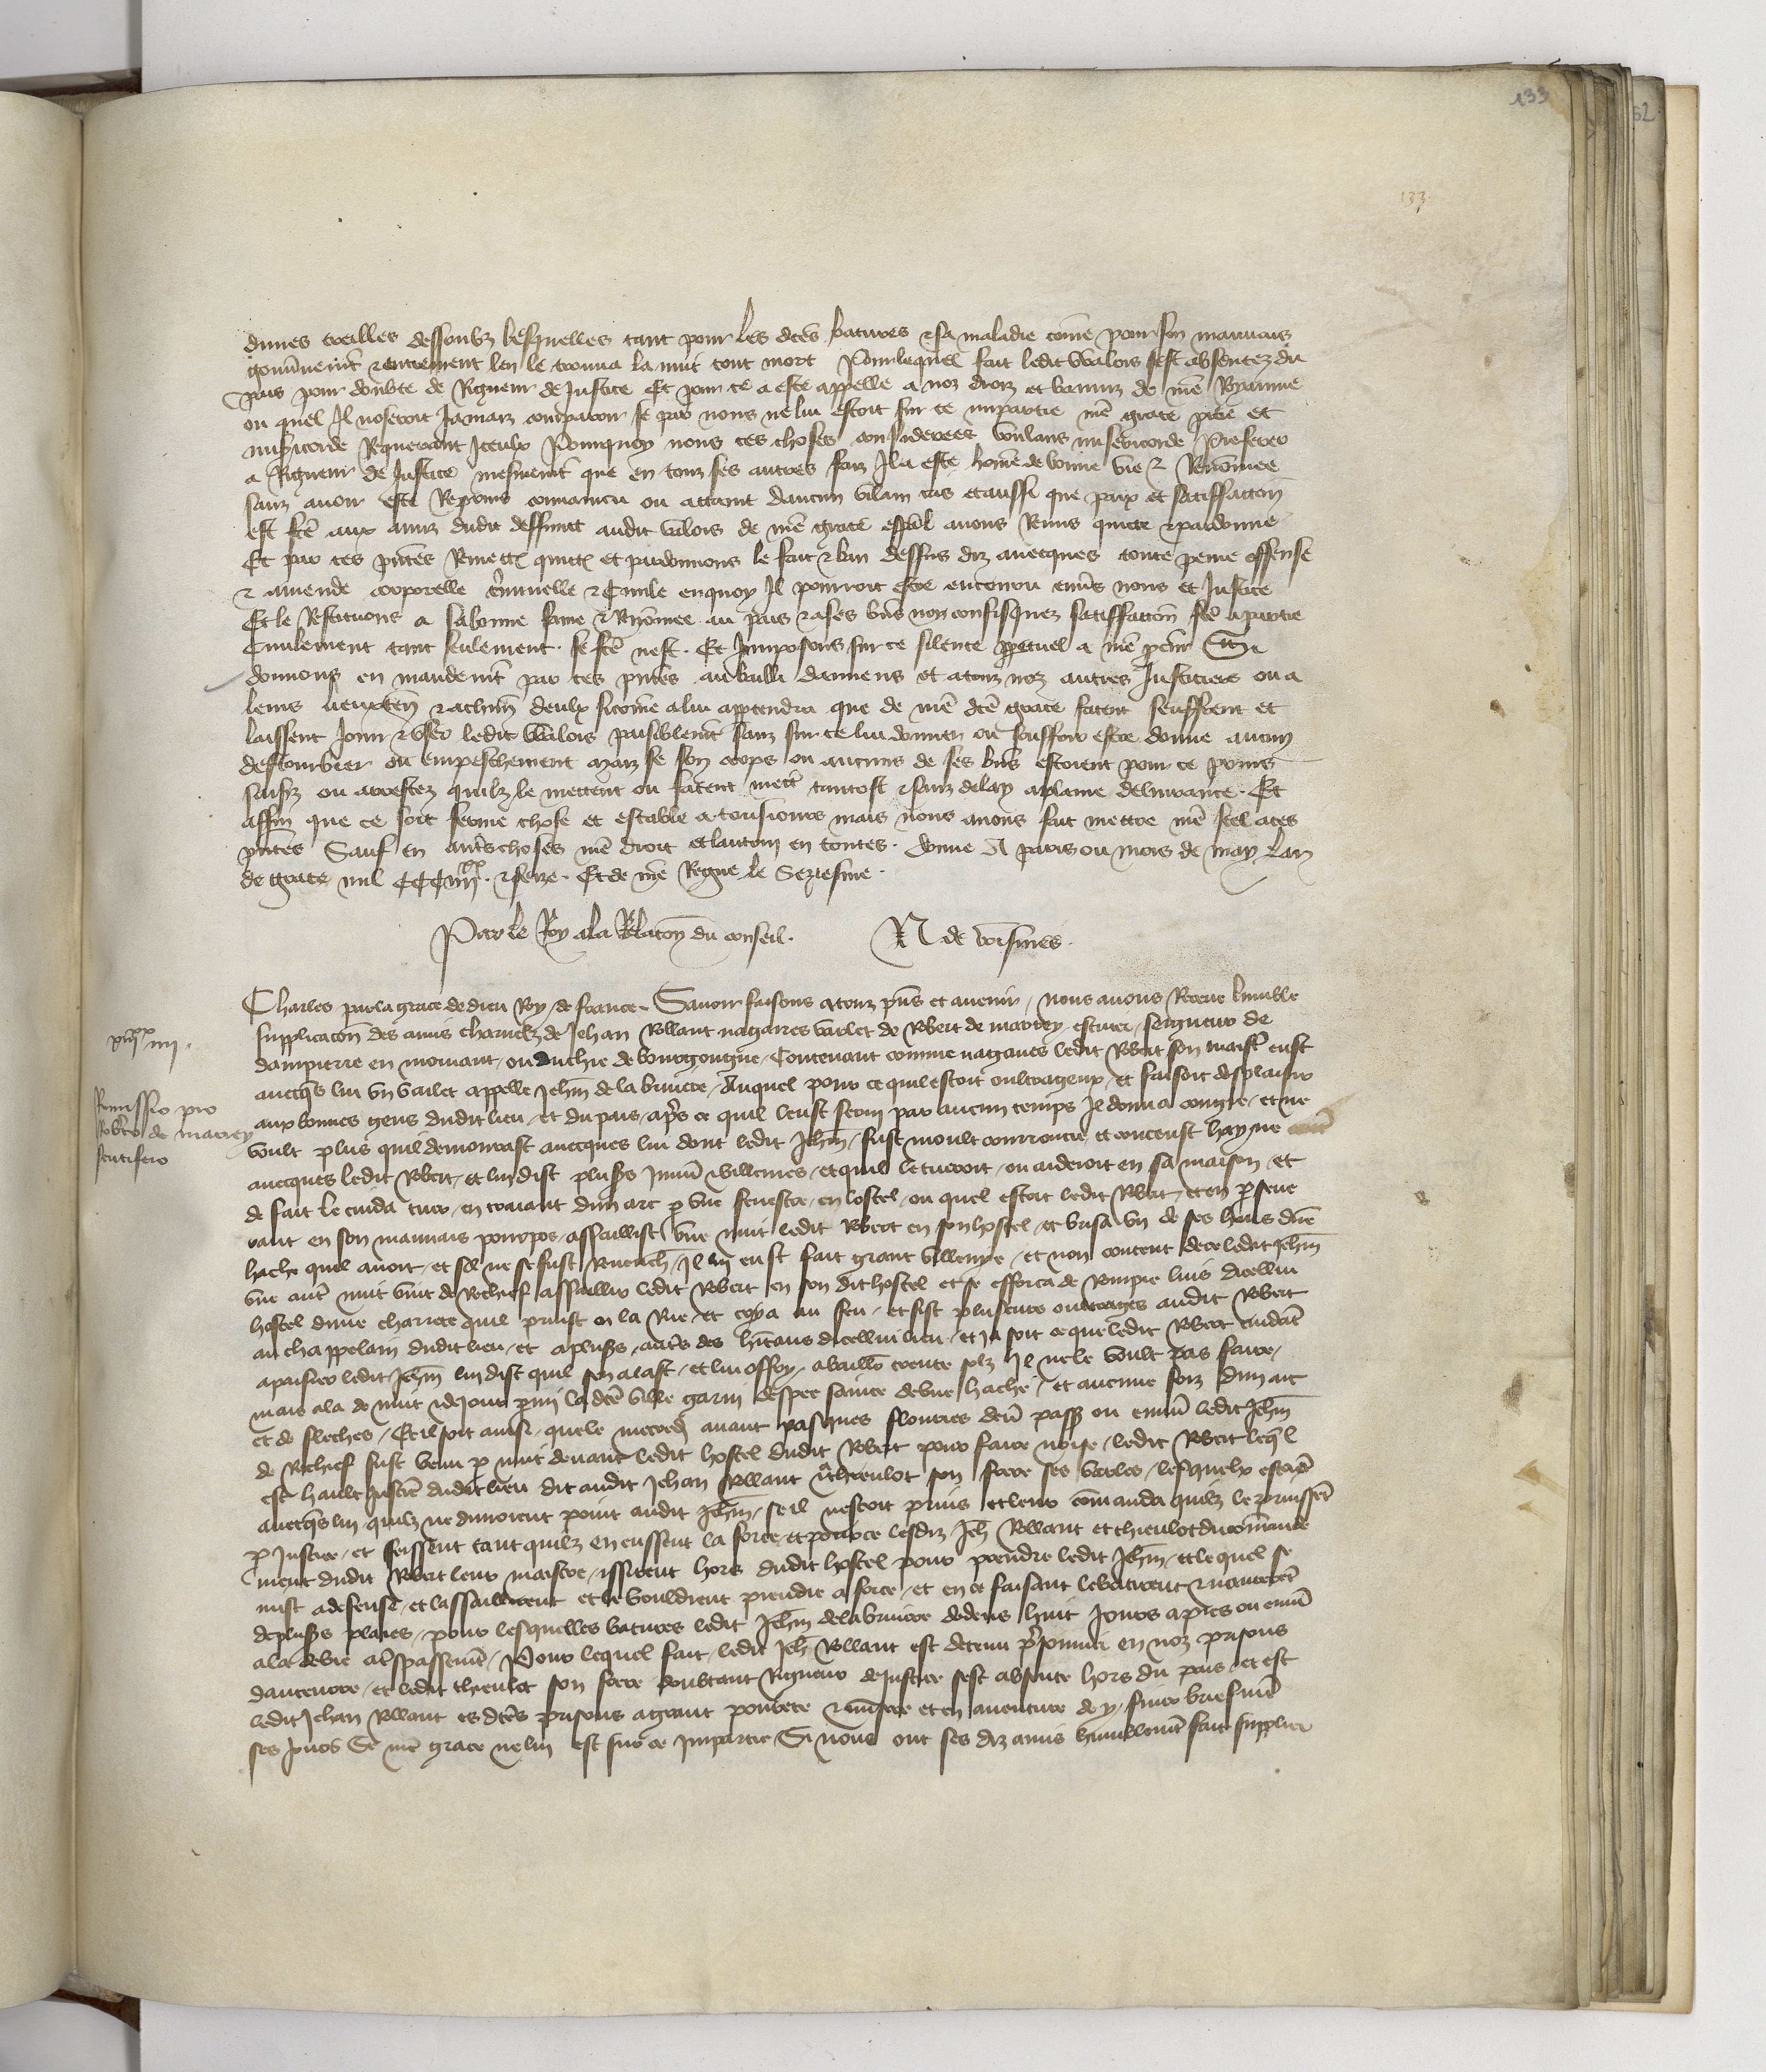 133
133
dunes treilles dessoubz lesquelles tant pour les dces bateures & sa maladie come pour son mauuais
gouunemt & entemment len le trouua la nuit tout mort Pour lequel fait ledit Walois sest absentez du
pais pour doubte de Rigueur de Justice Et pour ce a este appelle a noz droiz et banniz de nre Royaume
ou quel Il noseroit Jamaiz comparoir se par nous ne lui estoit sur ce impartie nre grace pitie et
misicorde Requerant Iceulx Pourquoy nous ces choses considerees voulans misericorde Preferer
a Rigueur de Justice mesmemt que en touz ses autres faiz Il a este home de bonne vie & Renomee
sanz auoir este Repruis conuaincu ou attaint daucun vilain cas et aussi que paix et satiffaccon
est fce aux amis dudit deffunct audit Valois de nre grace espal auons Remis quicte & pardonne
Et par ces pntes Remett quictt et pardonnons le fait & ban dessus diz auecques toute peine offense
& amende corporelle criminelle & Ciuile en quoy Il pourroit estre encouru enuers nous et Justice
Et le Restituons a sa bonne fame & Renomee au pais & a ses bns non confisquez satiffaccon fce a partie
Ciuilement tant seulement se fce nest. Et Imposons sur ce silence ppetuel a nre pcur Sy
donnons en mandemt par ces pntes au bailli damiens et a touz noz autres Justiciers ou a
leurs lieuxten & a chun deulx sicome a lui apptendra que de nre dce grace facent seuffrent et
laissent Joir & vser ledit Walois paisiblemt sanz sur ce lui donner ou souffrir estre donne aucun
destourbier ou empeschement maiz se son corps ou aucuns de ses bns estoient pour ce prins
saisiz ou arrestez quilz le mettent ou facent mett tantost & sanz delay a plaine deliurance. Et
affin que ce soit ferme chose et estable a tousiours mais nous auons fait mettre nre seel a ces
pntes Sauf en autschoses nre droit et lautrui en toutes. Donne A paris ou mois de may Lan
de grace mil CCC iiiixx. & seize. Et de nre Regne le Seziesme.
Par le Roy a la Relacon du conseil. N de voisines.
Charles par la grace de dieu Roy de france. Sauoir faisons a touz pns et auenir, nous auons Receue lumble
supplicacon des amis charnelz de Jehan Rollant nagaires varlet de Robert de marrey escuier, seigneur de
dampierre en moruant, ou duchie de bourgongne, Contenant comme nagaires ledit Robert son maistre eust
auecqs lui vn vallet appelle Jehan de la bruiere, Auquel pour ce quil estoit oultrageux, et faisoit desplaisir
aux bonnes gens dudit lieu, et du pais, apres ce quil leust serui par aucun temps Il donna congie, et ne
voult plus quil demourast auecques lui dont ledit Jehan, fust moult courroucie, et conceust hayne
auecques ledit Robert, et lui dist plusrs Iniur villennies, et quil le tueroit, ou arderoit en sa maison, et
de fait le cuida tuer, en traiant dun arc p vne fenestre, en lostel, ou quel estoit ledit Robert, et en pseue
rant en son mauuais pourpos, assaillist vne nuit ledit Robert en son hostel, et brisa vn de ses huis dune
hache quil auoit, et sil ne se fust Reueuch, Il lui eust fait grant villenye, et non content de ce ledit Jehan
vne autre nuit vint de Rechief assaillir ledit Robert en son dit hostel et se efforca de Rompre luis dicellui
hostel dune charrete quil prinst en la Rue, et crya au feu, et fist plusieurs oultrages audit Robert
au chappelain dudit lieu, et a plusrs, auts des hitans dicellui lieu, et ia soit ce que ledit Robert cuidat
apaisier ledit Jehan lui dist quil sen alast, et lui offry, a baillier trente solz Il ne le voult pas faire,
mais ala de nuit & de Jour pmi la dce ville garni despee saincte dune hache, et aucune foiz dun arc
et de fleches, Et il soit ainsi, que le mecredi auant pasques flouries dern passe ou enuiron ledit Jehan
de Rechief fust venu p nuit deuant ledit hostel dudit Robert pour faire noise, ledit Robert leql
est hault Justicier dudit lieu dit audit Jehan Rollant & thieulot son frere ses varles, lesquelx estoiet
auecqs lui quilz ne durroient point audit Jehan, se il nestoit prins et leur comanda quilz le prinssent
p Justice, et feissent tant quilz en eussent la force, et pour ce lesdiz Jeh Rollant et thieulot du comande
ment dudit Robert leur maistre, issirent hors dudit hostel pour prendre ledit Jehan, et lequel se
mist a defense, et lassaillirent et le vouldrent prendre a force, et en ce faisant le batirent & naurerent
de plusrs plaies, pour lesquelles bateures ledit Jehan de la bruiere dedens huit Jours apres ou enuiron
ala de vie a trespassemt, Pour lequel fait, ledit Jeh Rollant est detenu prisonnier en noz prisons
dauceurre, et ledit thieulot son frere doubtant Rigueur de Justice sest absente hors du pais, et est
ledit Jehan Rollant es dces prisons a grant pourete & misere et en auenture de y, finir briefmt
ses Jours Se nre grace ne lui est sur ce Impartie Si nous ont ses diz amis humblemt fait supplier
viixx iiii.
Remissio pro
Robto de marrey
scutifero